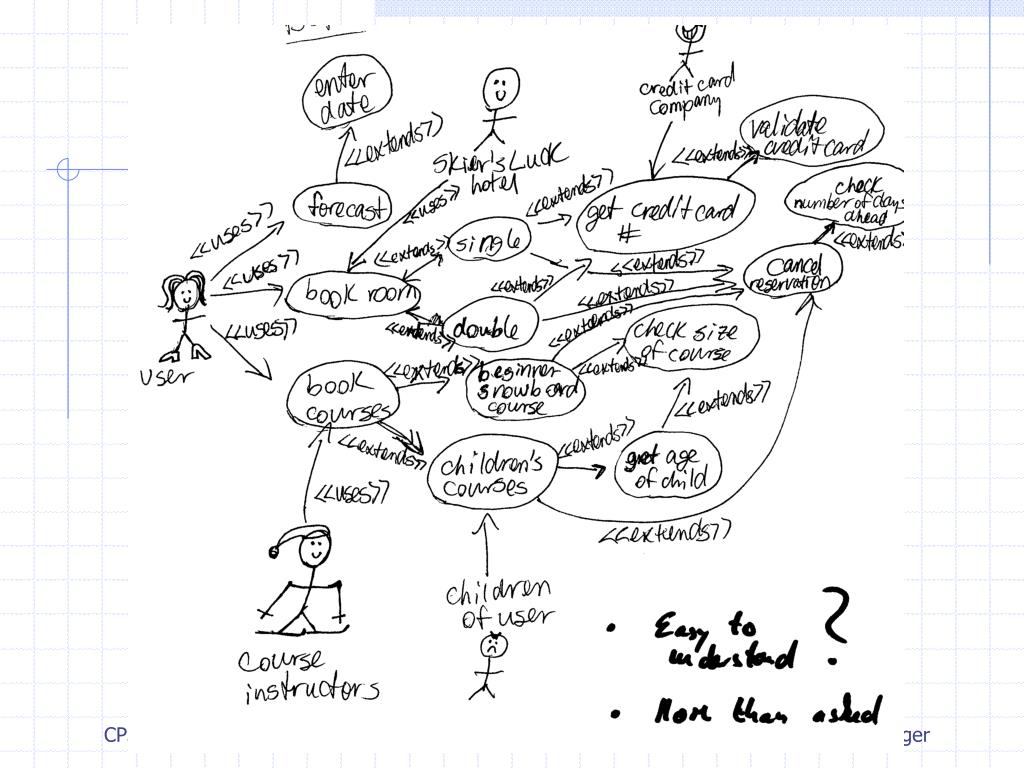 enter
date
<<extends>>
credit card
company
validate
credit card
<<extends>>
Skier's Luck
hotel
check
number of days
ahead
<<extends>>
forecast
<<uses>>
<<extends>>
get credit card
#
<<uses>>
single
<<extends>>
<<uses>>
book room
<<extends>>
<<extends>>
<<extends>>
cancel
reservation
<<uses>>
<<extends>>
double
<<extends>>
check size
of course
user
book
courses
<<extends>>
beginner
snowboard
course
<<extends>>
<<extends>>
<<extends>>
children's
courses
<<extends>>
get age
of child
<<uses>>
<<extends>>
children
of user
course
instructors
• Easy to ?
understand
• More than asked
CP
ger